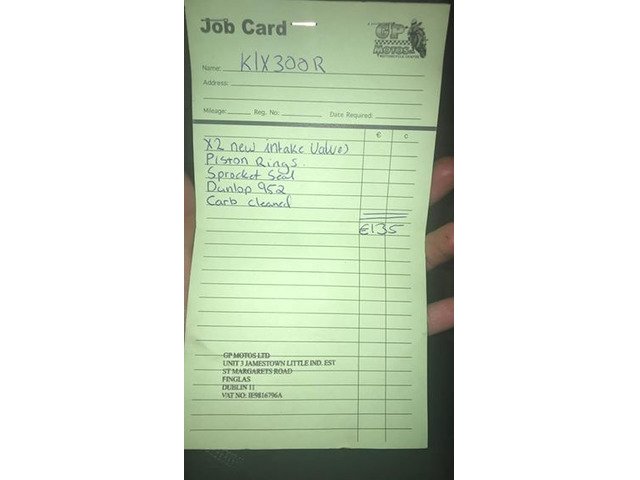 Job Card
GP
MOTOS LTD
MOTORCYCLE CENTRE
Name: KLX300R
Address:
Mileage: Reg. No: Date Required:
€ c
X2 new intake valves
Piston Rings.
Sprocket Seal
Dunlop 952
Carb cleaned
€135
GP MOTOS LTD
UNIT 3 JAMESTOWN LITTLE IND. EST
ST MARGARETS ROAD
FINGLAS
DUBLIN 11
VAT NO: IE9816796A